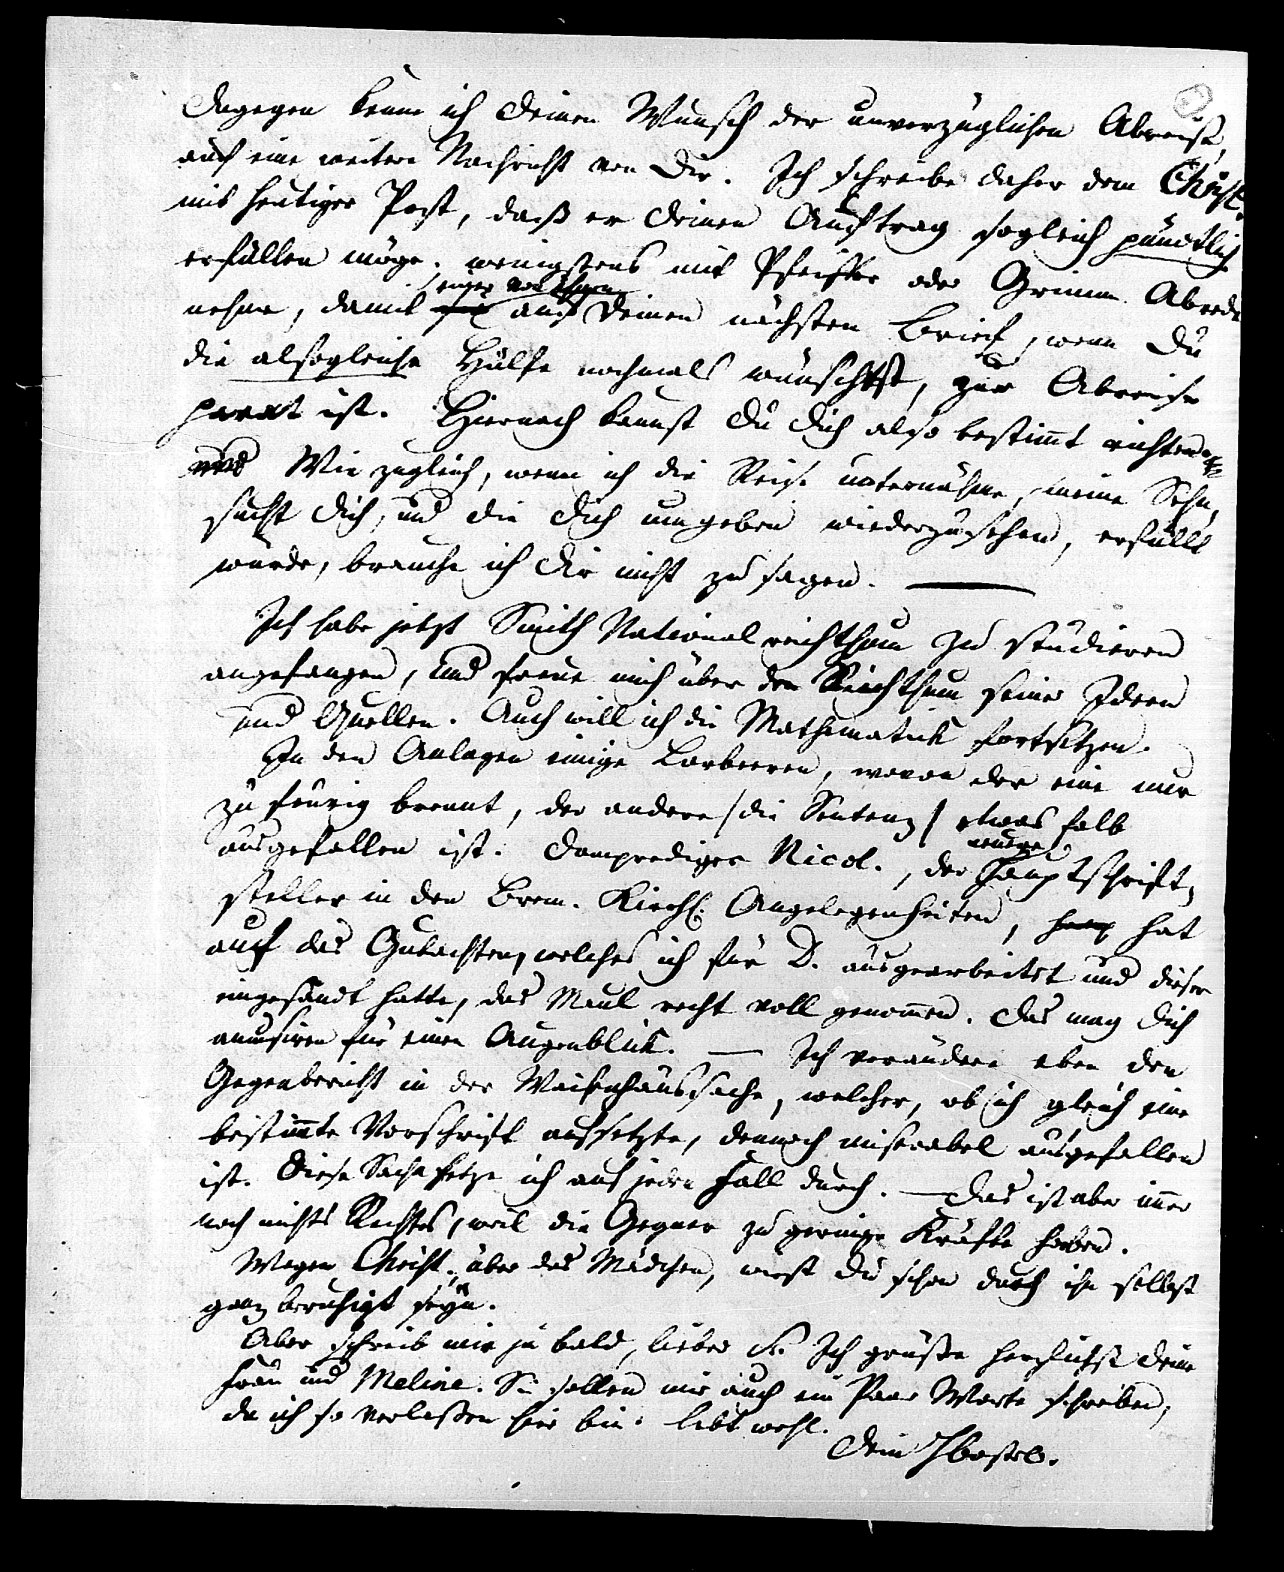 dagegen kenne ich deinen Wunsch der unverzüglichen Abreise,
auf eine weitere Nachricht von Dir. Ich schreibe daher dem Christ.
mit heutiger Post, daß er deinen Auftrag sogleich pünctlich
erfüllen möge, wenigstens mit Pfeiffer oder Grimm Abrede
einer von ihnen
nehme, damit auf deinen nächsten Brief, wenn Du
die alsogleiche Hülfe nochmals wünschtest, zur Abreise
parat ist. Hiernach kannst Du Dich also bestimt richten.
Wie zugleich, wenn ich die Reise unternähme, meine Sehn-
sucht dich, und die dich umgeben wiederzusehen, erfüllt
würde, brauche ich dir nicht zu sagen. —
Ich habe jetzt Smith Nationalreichthum zu studieren
angefangen, und freue mich über den Reichthum seiner Ideen
und Quellen. Auch will ich die Mathematick fortsetzen.
In den Anlagen einige Lorbeeren, wovon der eine nur
zu feurig brennt, der andere /die Sentenz/ etwas falb
ausgefallen ist. Domprediger Nicol., der Hauptschrift-
steller in den Brem. Kirchl. Angelegenheiten, hat
auf das Gutachten, welches ich für D. ausgearbeitet und dieser
eingesandt hatte, das Maul recht voll genomen. Das mag dich
amusiren für einen Augenblick. — Ich verändere eben den
Gegenbericht in der Waisenhaussache, welcher, ob ich gleich eine
bestimte Vorschrift aufsetzte, dennoch miserabel ausgefallen
ist. Diese Sache setze ich auf jeden Fall durch. — Das ist aber imer
noch nichts Rechtes, weil die Gegner zu geringe Kräfte haben.
Wegen Christ., über das Mädchen, wirst Du schon durch ihn selbst
ganz beruhigt seyn.
Aber schreib mir ja bald, lieber S. Ich grüße herzlichst deine
Frau und Meline. Sie sollen mir auch ein Paar Worte schreiben,
da ich so verlaßen hier bin. Lebt wohl.
Dein